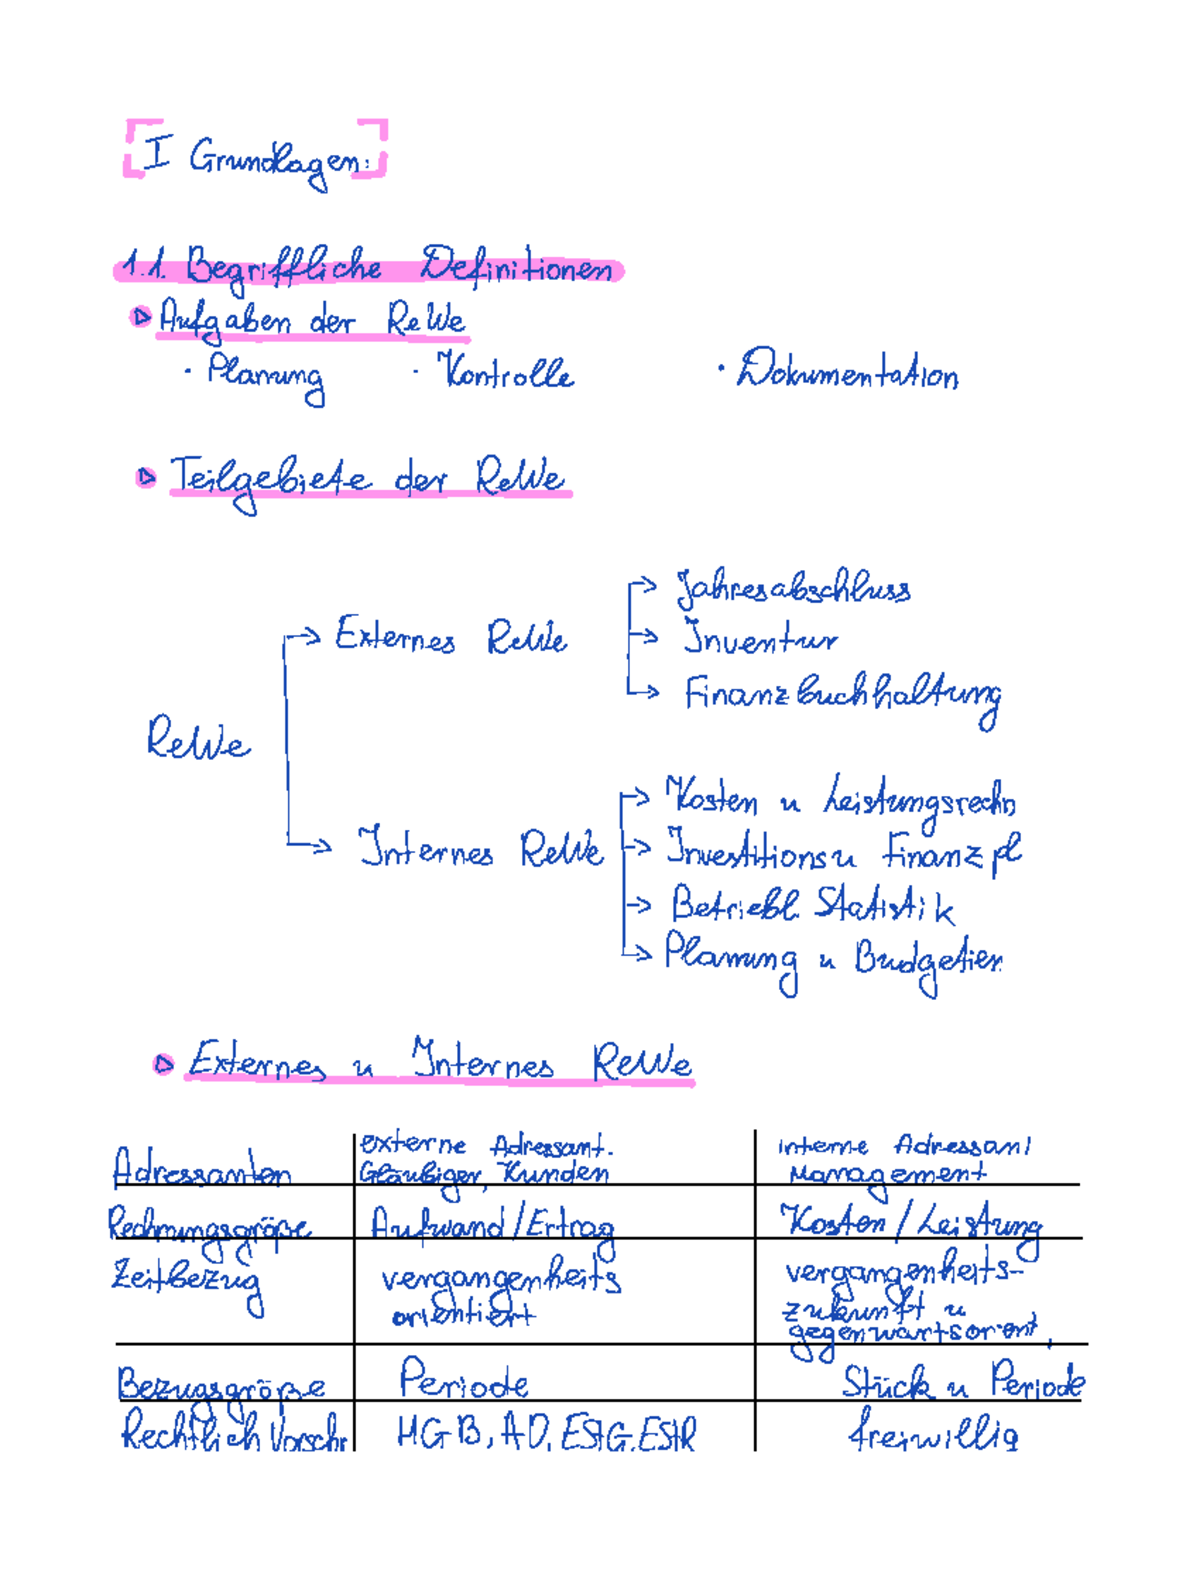 I Grundlagen:
1.1. Begriffliche Definitionen
Aufgaben der ReWe
· Planung · Kontrolle · Dokumentation
Teilgebiete der ReWe
Jahresabschluss
Externes ReWe
Inventur
Finanzbuchhaltung
ReWe
Kosten u Leistungsrechn
Internes ReWe
Investitions u Finanzpl
Betriebl. Statistik
Planung u Budgetier.
Externes u Internes ReWe
Adressanten
externe Adressant.
Gläubiger, Kunden
interne Adressant
Management
Rechnungsgröße Aufwand/Ertrag Kosten/Leistung
Zeitbezug
vergangenheits
orientiert
vergangenheits-
zukunft u
gegenwartsorient.
Bezugsgröße Periode Stück u Periode
Rechtlich Vorschr HGB, AO, EStG, EStR freiwillig